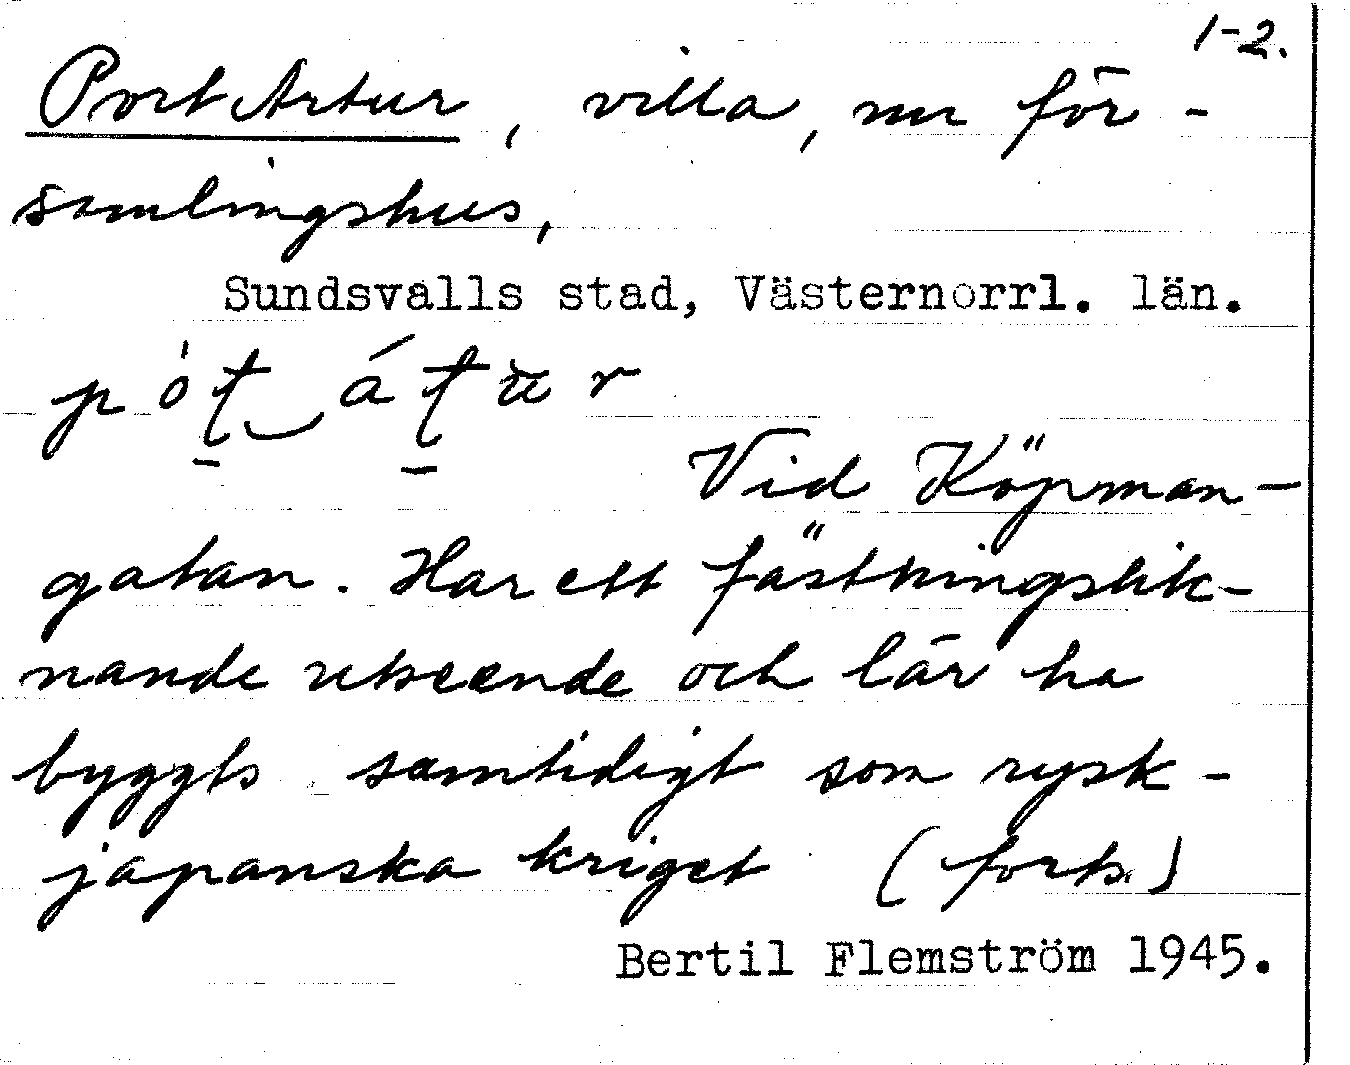 1-2.
Port Artur, villa, nu för-
samlingshus,
Sundsvalls stad, Västernorrl. län.
pót̠ át̠ur
Vid Köpman-
gatan. Har ett fästningslik-
nande utseende och lär ha
byggts samtidigt som rysk-
japanska kriget (forts.)
Bertil Flemström 1945.